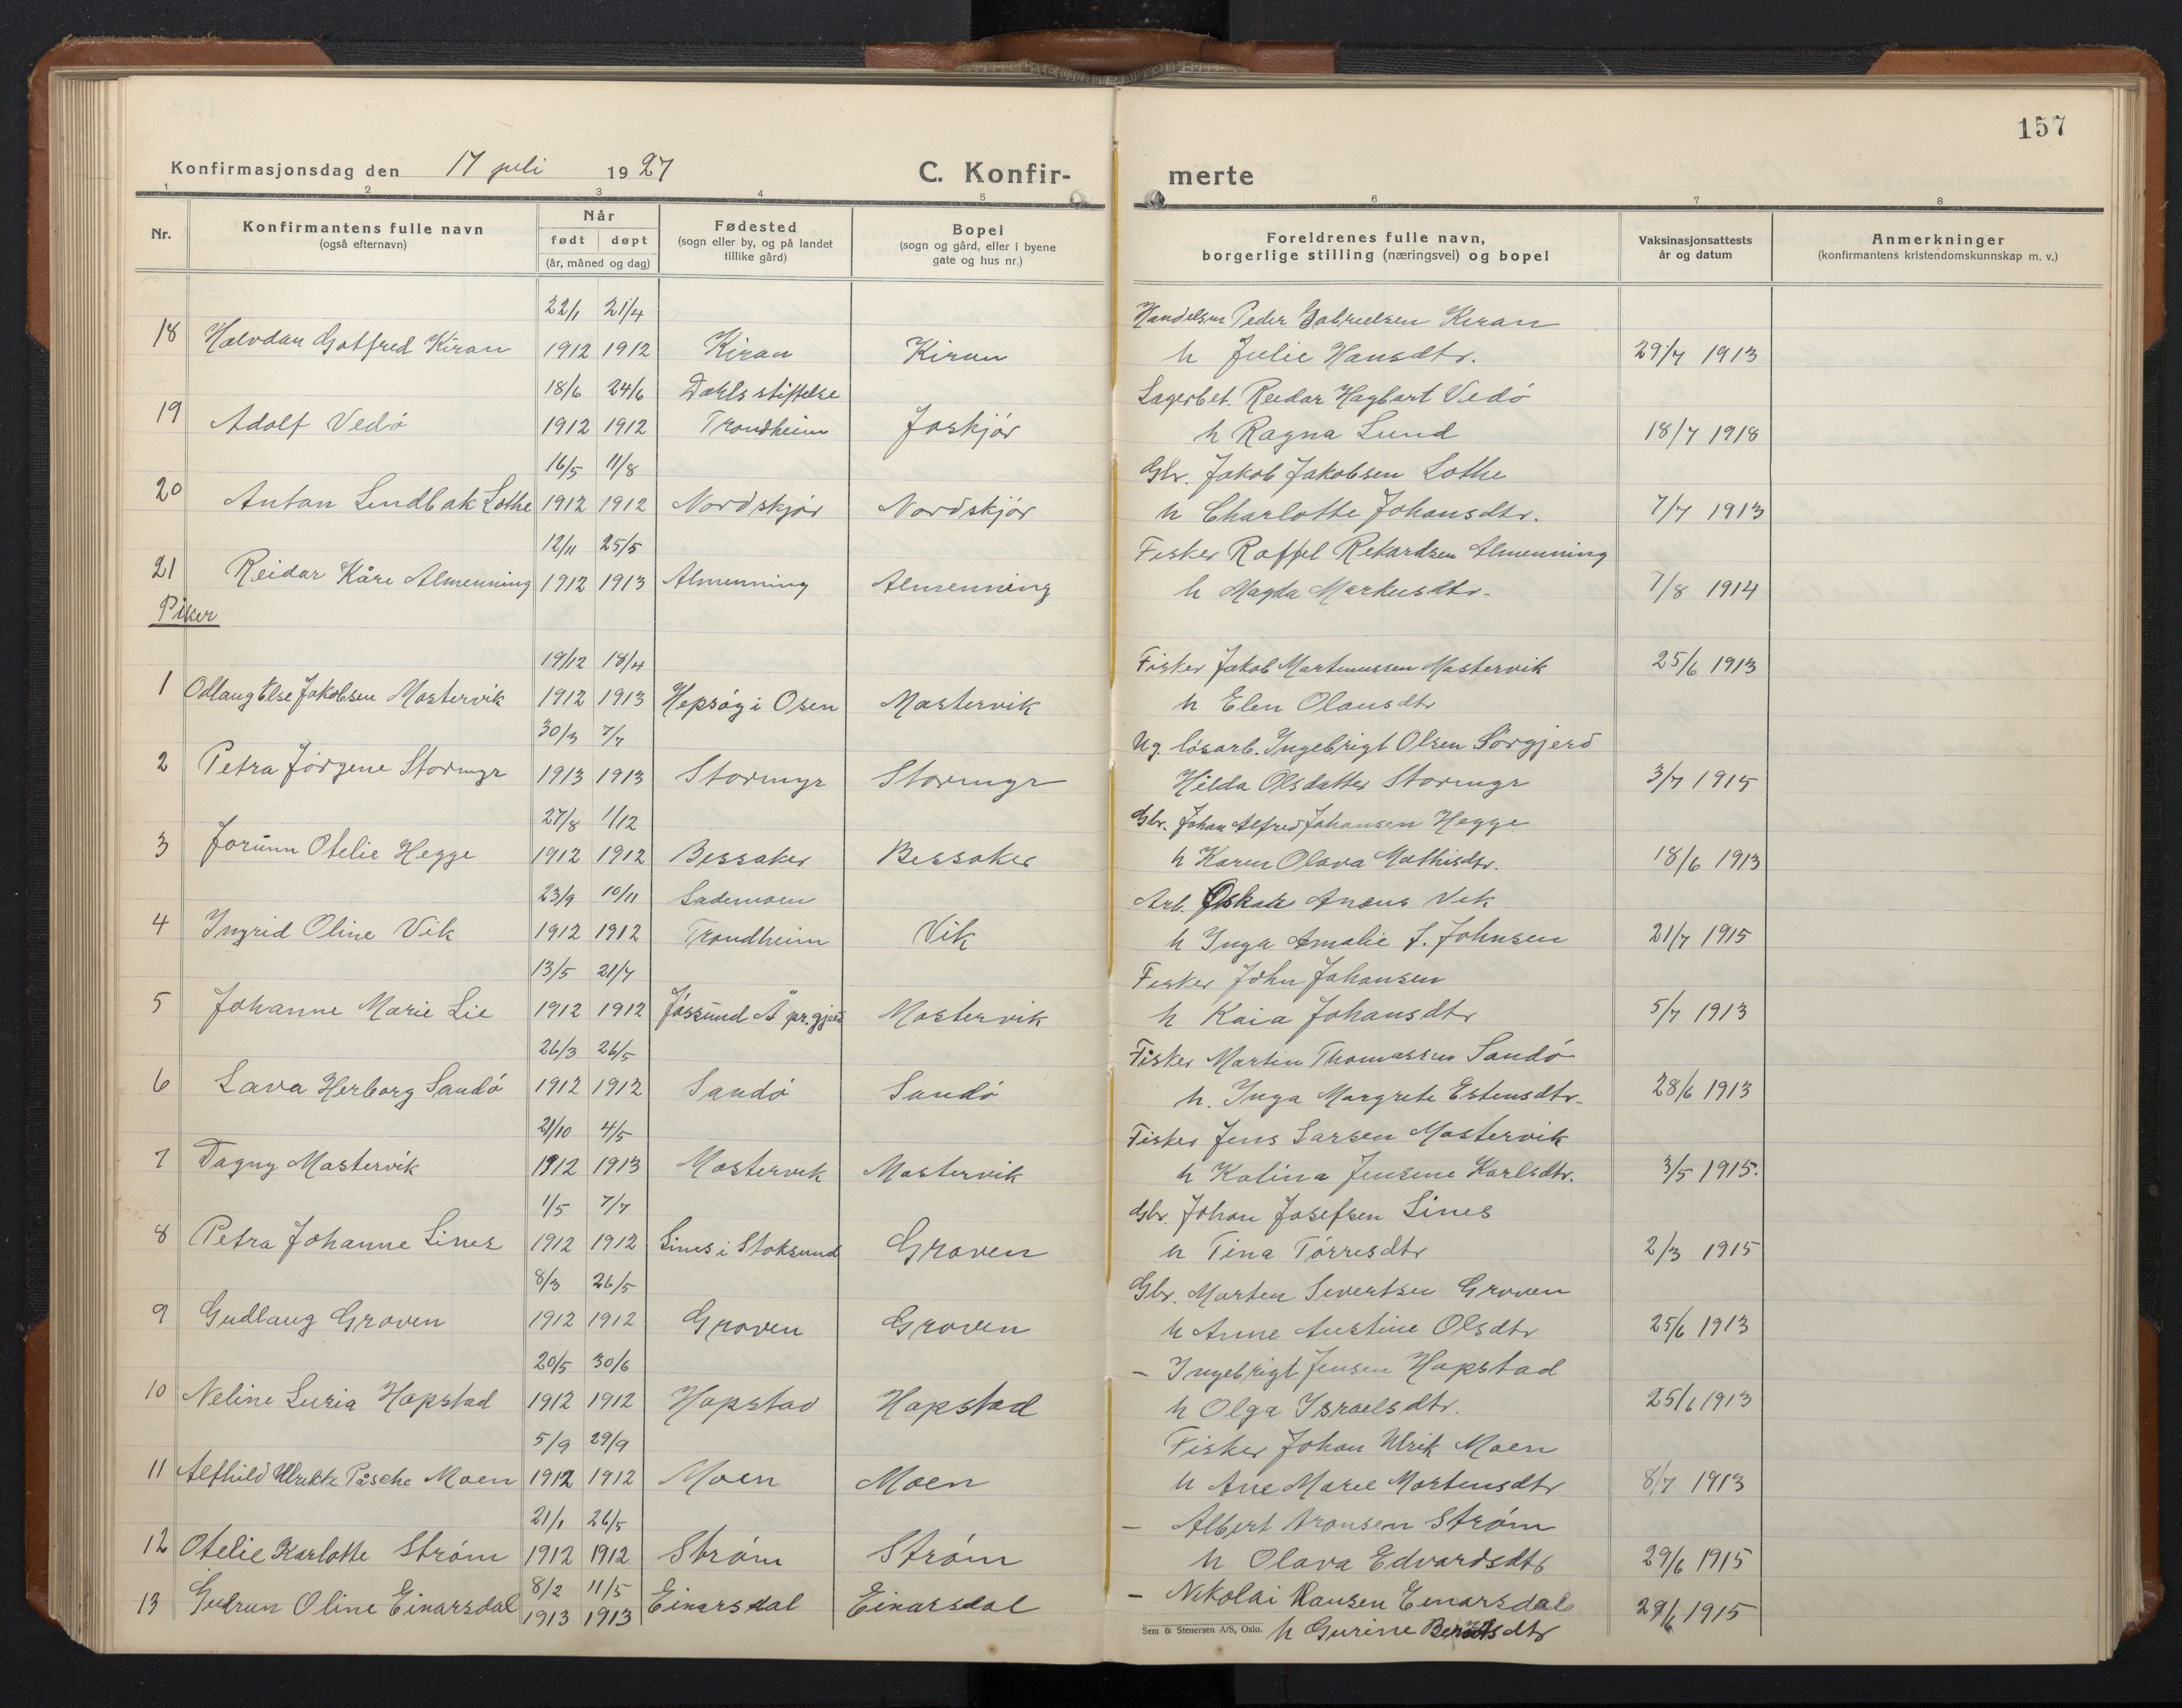 157
Konfirmasjonsdag den 17 juli 1927
C. Konfir-merte
1 2 3 4 5 6 7 8
Nr.
Konfirmantens fulle navn
(også efternavn)
Når
født døpt
(år, måned og dag)
Fødested
(sogn eller by, og på landet
tillike gård)
Bopel
(sogn og gård, eller i byene
gate og hus nr.)
Foreldrenes fulle navn,
borgerlige stilling (næringsvei) og bopel
Vaksinasjonsattests
år og datum
Anmerkninger
(konfirmantens kristendomskunnskap m. v.)
22/1 21/4 Handelsm Peder Gabrielsen Kiran
18 Halvdan Gotfred Kiran 1912 1912 Kiran Kiran h Julie Hansdtr. 29/7 1913
18/6 24/6 Dahls stiftelse Lagerbet. Reidar Hagbart Vedø
19 Adolf Vedø 1912 1912 Trondheim Joskjør h Ragna Lund 18/7 1918
16/5 11/8 Gbr. Jakob Jakobsen Lothe
20 Anton Lindbak Lothe 1912 1912 Nordskjør Nordskjør h Charlotte Johansdtr. 7/7 1913
12/11 25/5 Fisker Roffel Rekardsen Almenning
21 Reidar Kåre Almenning 1912 1913 Almenning Almenning h Magda Markusdtr. 7/8 1914
Piker
19/12 18/4 Fisker Jakob Martinussen Mastervik 25/6 1913
1 Odlaug Else Jakobsen Mastervik 1912 1913 Hepsøy i Osen Mastervik h Elen Olausdtr
30/3 7/7 Ug. løsarb. Ingebrigt Olsen Sørgjerd
2 Petra Jørgene Stormyr 1913 1913 Stormyr Stormyr Hilda Olsdatter Stormyr 3/7 1915
27/8 1/12 Gbr. Johan Alfred Johansen Hegge
3 Jorunn Otelie Hegge 1912 1912 Bessaker Bessaker h Karen Olava Mathisdtr. 18/6 1913
23/9 10/11 Lademoen Arb. Oskar Anæus Vik
4 Ingrid Oline Vik 1912 1912 Trondheim Vik h Inga Amalie J. Johnsen 21/7 1915
13/5 21/7 Fisker John Johansen
5 Johanne Marie Lie 1912 1912 Jøssund Å pr. gjerd Mastervik h Kaia Johansdtr 5/7 1913
26/3 26/5 Fisker Martin Thomassen Sandø
6 Lava Herborg Sandø 1912 1912 Sandø Sandø h. Inga Margrete Estensdtr. 28/6 1913
21/10 4/5 Fisker Jens Larsen Mastervik
7 Dagny Mastervik 1912 1913 Mastervik Mastervik h Kalina Jensine Karlsdtr. 3/5 1915.
1/5 7/7 Gbr. Johan Josefsen Lines
8 Petra Johanne Lines 1912 1912 Lines i Stoksund Groven h Tina Tørresdtr 2/3 1915
8/3 26/5 Gbr. Morten Sivertsen Groven
9 Gudlaug Groven 1912 1912 Groven Groven h Anne Austine Olsdtr 25/6 1913
20/5 30/6 – Ingebrigt Jensen Hopstad
10 Neline Luria Hopstad 1912 1912 Hopstad Hopstad h Olga Israelsdtr. 25/6 1913
5/9 29/9 Fisker Johan Ulrik Moen
11 Alfhild Ulrikke Påsche Moen 1912 1912 Moen Moen h Ane Marie Mortensdtr 8/7 1913
21/1 26/5 – Albert Aronsen Strøm
12 Otelie Karlotte Strøm 1912 1912 Strøm Strøm h Olava Edvardsdtr 29/6 1915
8/2 11/5 – Nikolai Hansen Einarsdal
13 Gudrun Oline Einarsdal 1913 1913 Einarsdal Einarsdal h Gurine Berntsdtr 29/6 1915
Sem & Stenersen A/S, Oslo.